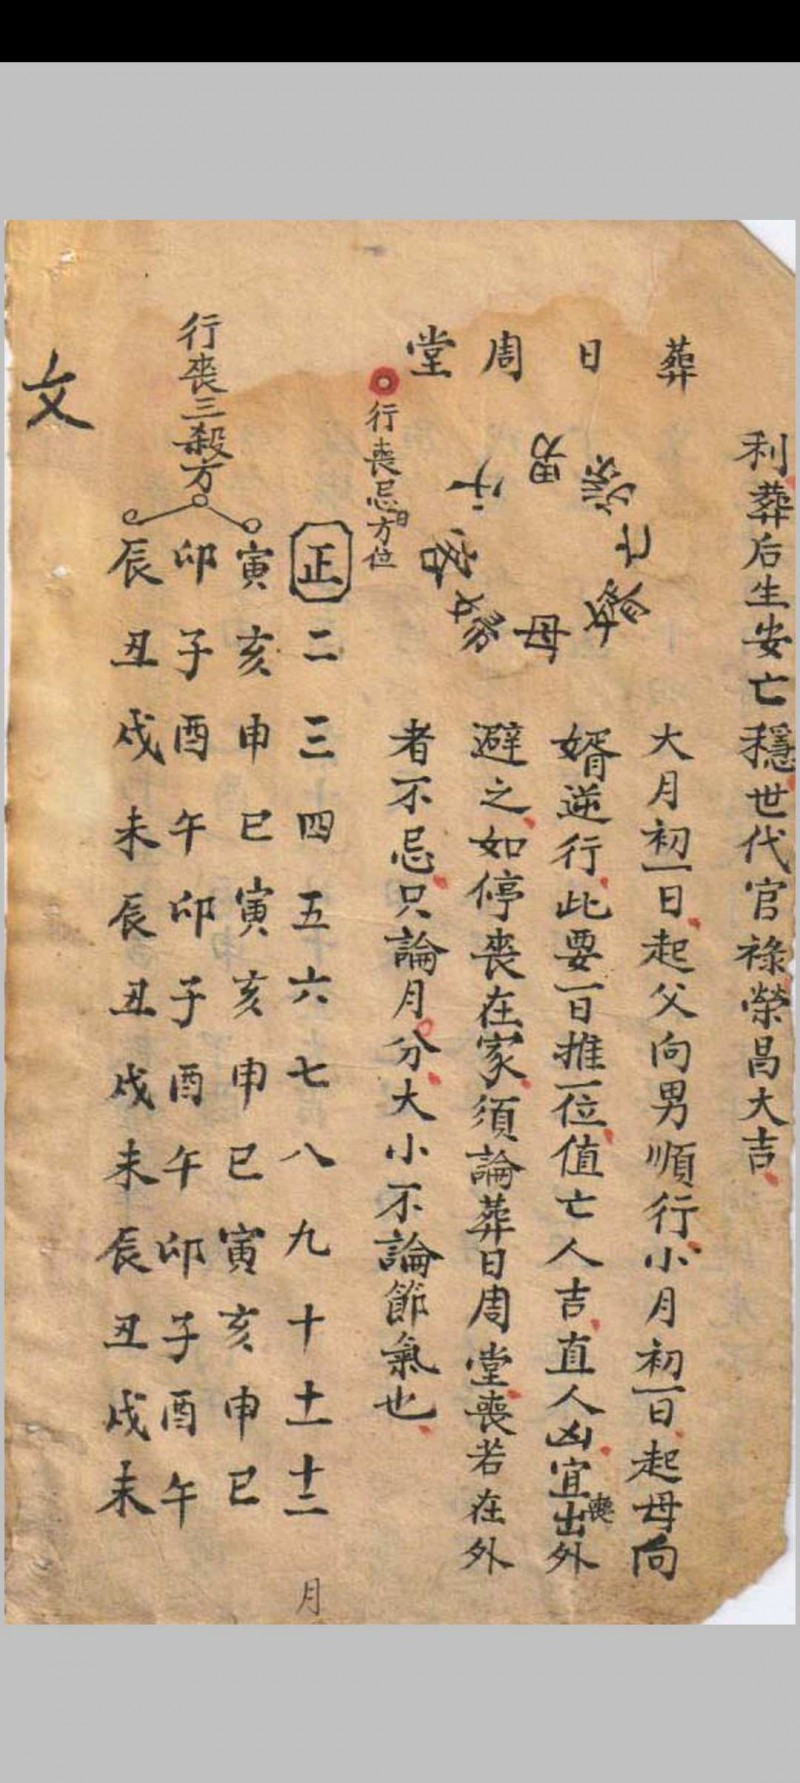 利葬后生安亡穩世代官祿榮昌大吉
葬日周堂
父
男
孫
亡
婿
母
婦
客
大月初一日起父向男順行小月初一日起母向
婿逆行此要一日推一位值亡人吉直人凶宜出喪外
避之如停喪在家須論葬日周堂喪若在外
者不忌只論月分大小不論節氣也
行喪忌日方位
正二三四五六七八九十十一十二月
行喪三殺方
寅亥申巳寅亥申巳寅亥申巳
卯子酉午卯子酉午卯子酉午
辰丑戌未辰丑戌未辰丑戌未
文